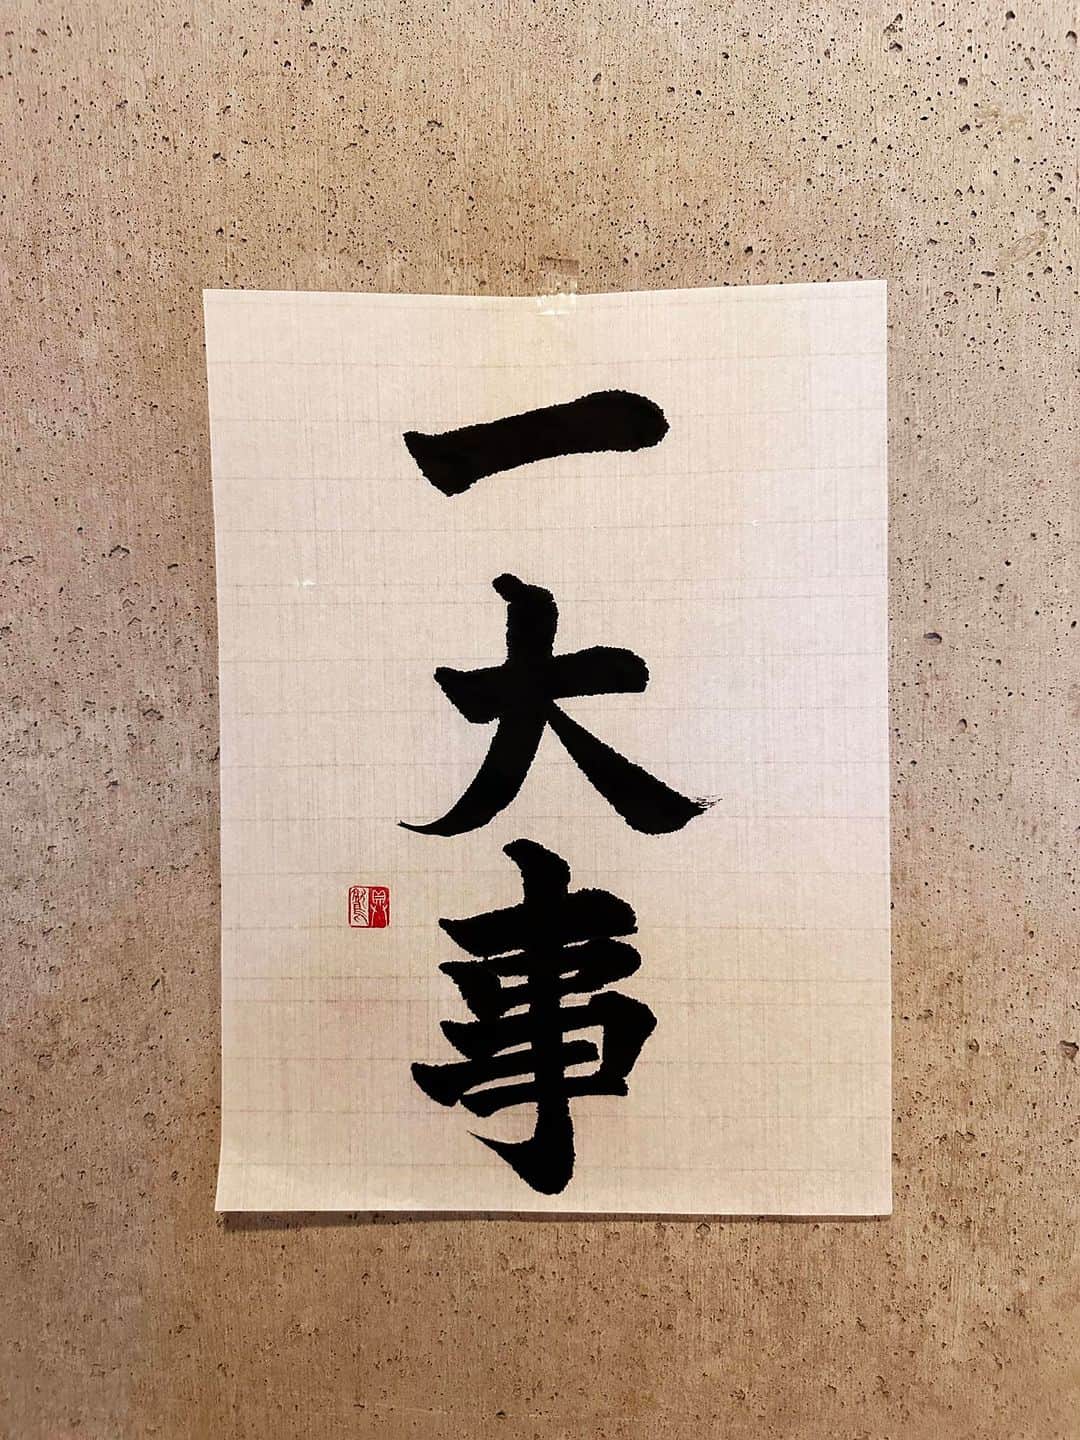 一大事